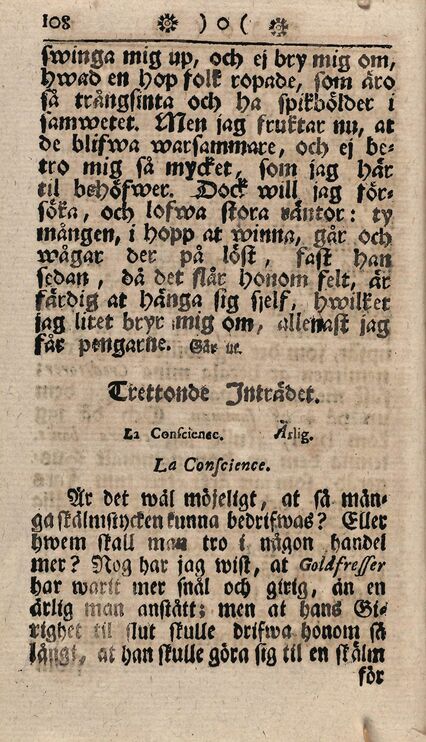 108 ) o (
swinga mig up, och ej bry mig om,
hwad en hop folk ropade, som äro
så trångsinta och ha spikbölder i
samwetet. Men jag fruktar nu, at
de blifwa warsammare, och ej be-
tro mig så mycket, som jag här
til behöfwer. Dock will jag för-
söka, och lofwa stora räntor: ty
mången, i hopp at winna, går och
wågar der på löst, fast han
sedan, då det slår honom felt, är
färdig at hänga sig sjelf, hwilket
jag litet bryr mig om, allenast jag
får pengarne. Går ut.
Trettonde Inträdet.
La Conscience. Ärlig.
La Conscience.
Är det wäl möjeligt, at så mån-
ga skälmstycken kunna bedrifwas? Eller
hwem skall man tro i någon handel
mer? Nog har jag wist, at Goldfresser
har warit mer snål och girig, än en
ärlig man anstått; men at hans Gi-
righet til slut skulle drifwa honom så
långt, at han skulle göra sig til en skälm
för